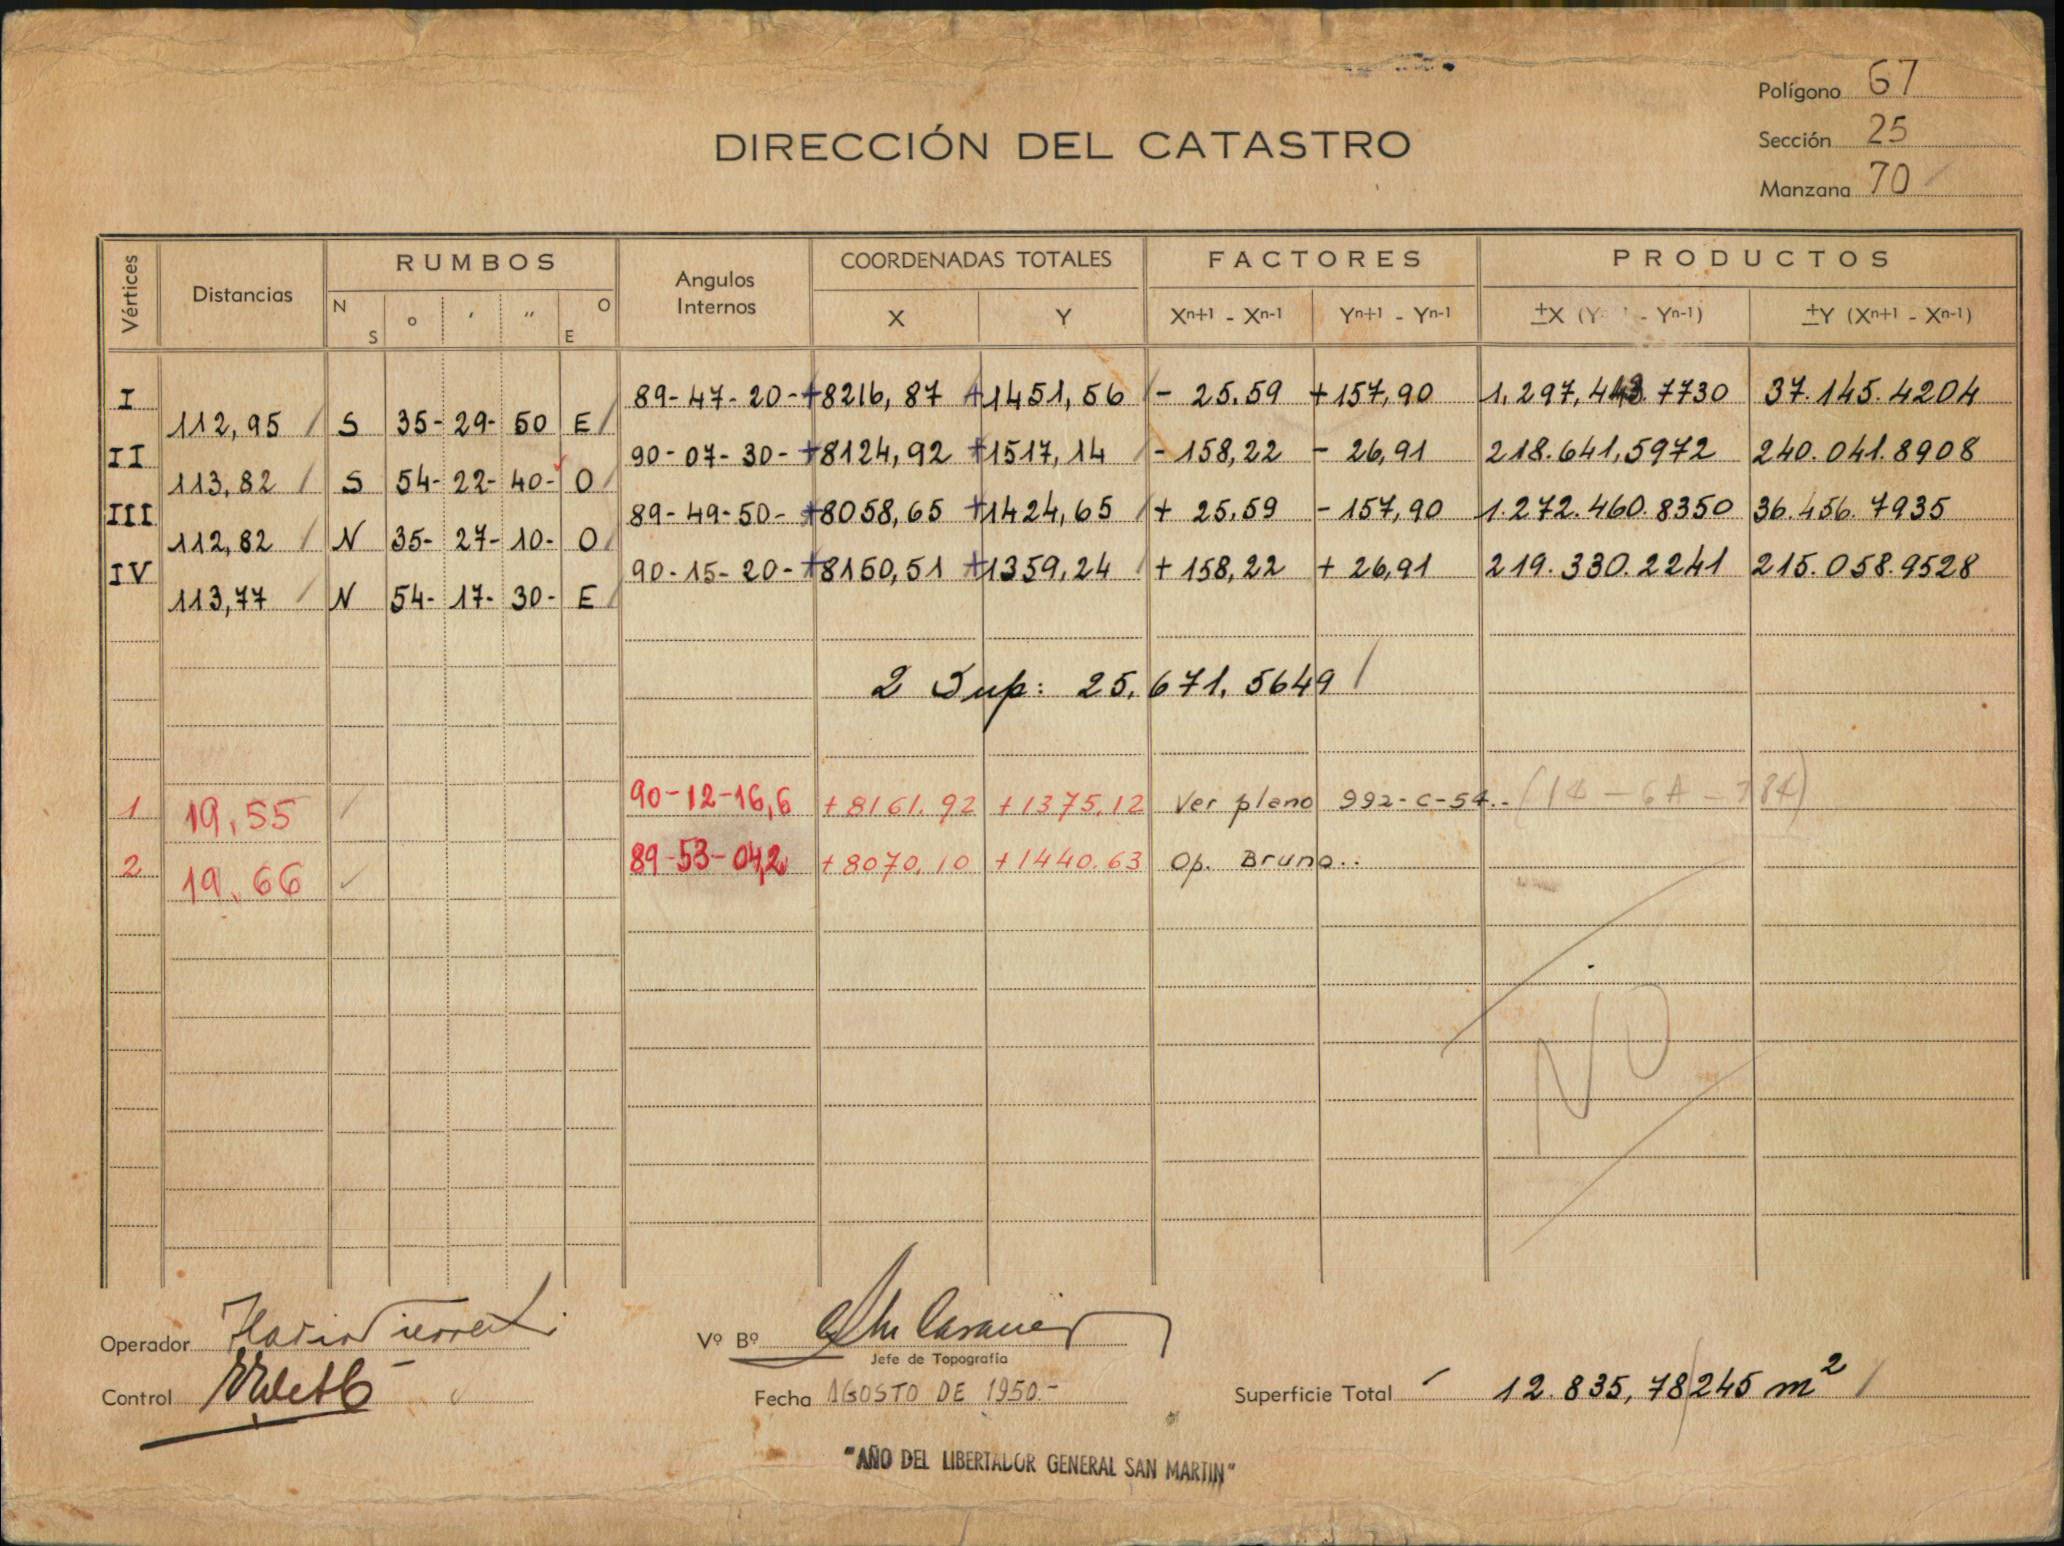 Polígono 67
DIRECCIÓN DEL CATASTRO
Sección 25
Manzana 70
Vértices Distancias RUMBOS Angulos Internos COORDENADAS TOTALES FACTORES PRODUCTOS
N S o ' '' O E X Y Xn+1 - Xn-1 Yn+1 - Yn-1 ±X (Y - Yn-1) ±Y (Xn+1 - Xn-1)
I 89-47-20- +8216,87 +1451,56 - 25.59 +157,90 1.297,443.7730 37.145.4204
112,95 S 35- 29- 50 E
II 90-07-30- +8124,92 +1517,14 - 158,22 - 26,91 218.641,5972 240.041.8908
113,82 S 54- 22- 40- O
III 89-49-50- +8058,65 +1424,65 + 25,59 - 157,90 1.272.460.8350 36.456.7935
112,82 N 35- 27- 10- O
IV 90-15-20- +8150,51 +1359,24 + 158,22 + 26,91 219.330.2241 215.058.9528
113,77 N 54- 17- 30- E
2 Sup: 25.671.5649
1 19,55 90-12-16,6 +8161.92 +1375,12 Ver plano 992-C-54..
2 19,66 89-53-04,2 +8070,10 +1440.63 Op. Bruno..
NO
Operador
Vº Bº
Jefe de Topografía
Control
Fecha AGOSTO DE 1950.-
Superficie Total 12.835,78245 m2
"AÑO DEL LIBERTADOR GENERAL SAN MARTIN"